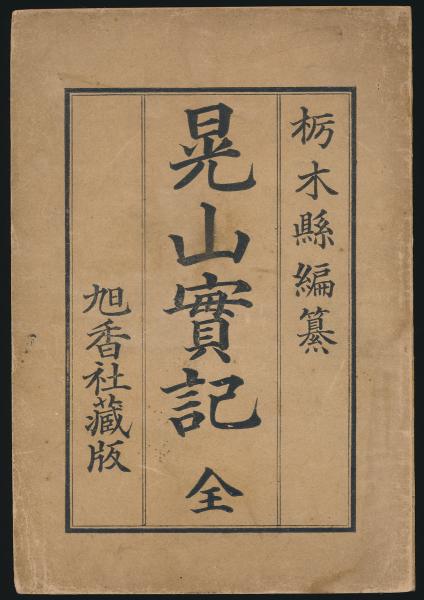 栃木縣編纂
晃山實記 全
旭香社藏版